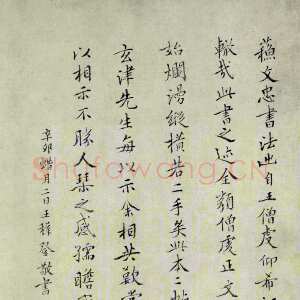 蘓文忠書法出自王僧虔仰希
轍哉此書之近全類僧虔正文
始爛漫縱橫若二手矣此本二帖
玄津先生每以示余相共歡賞
以相示不勝人琴之感孺瞻
辛卯臘月二日王穉登敬書
Shufawang.CN